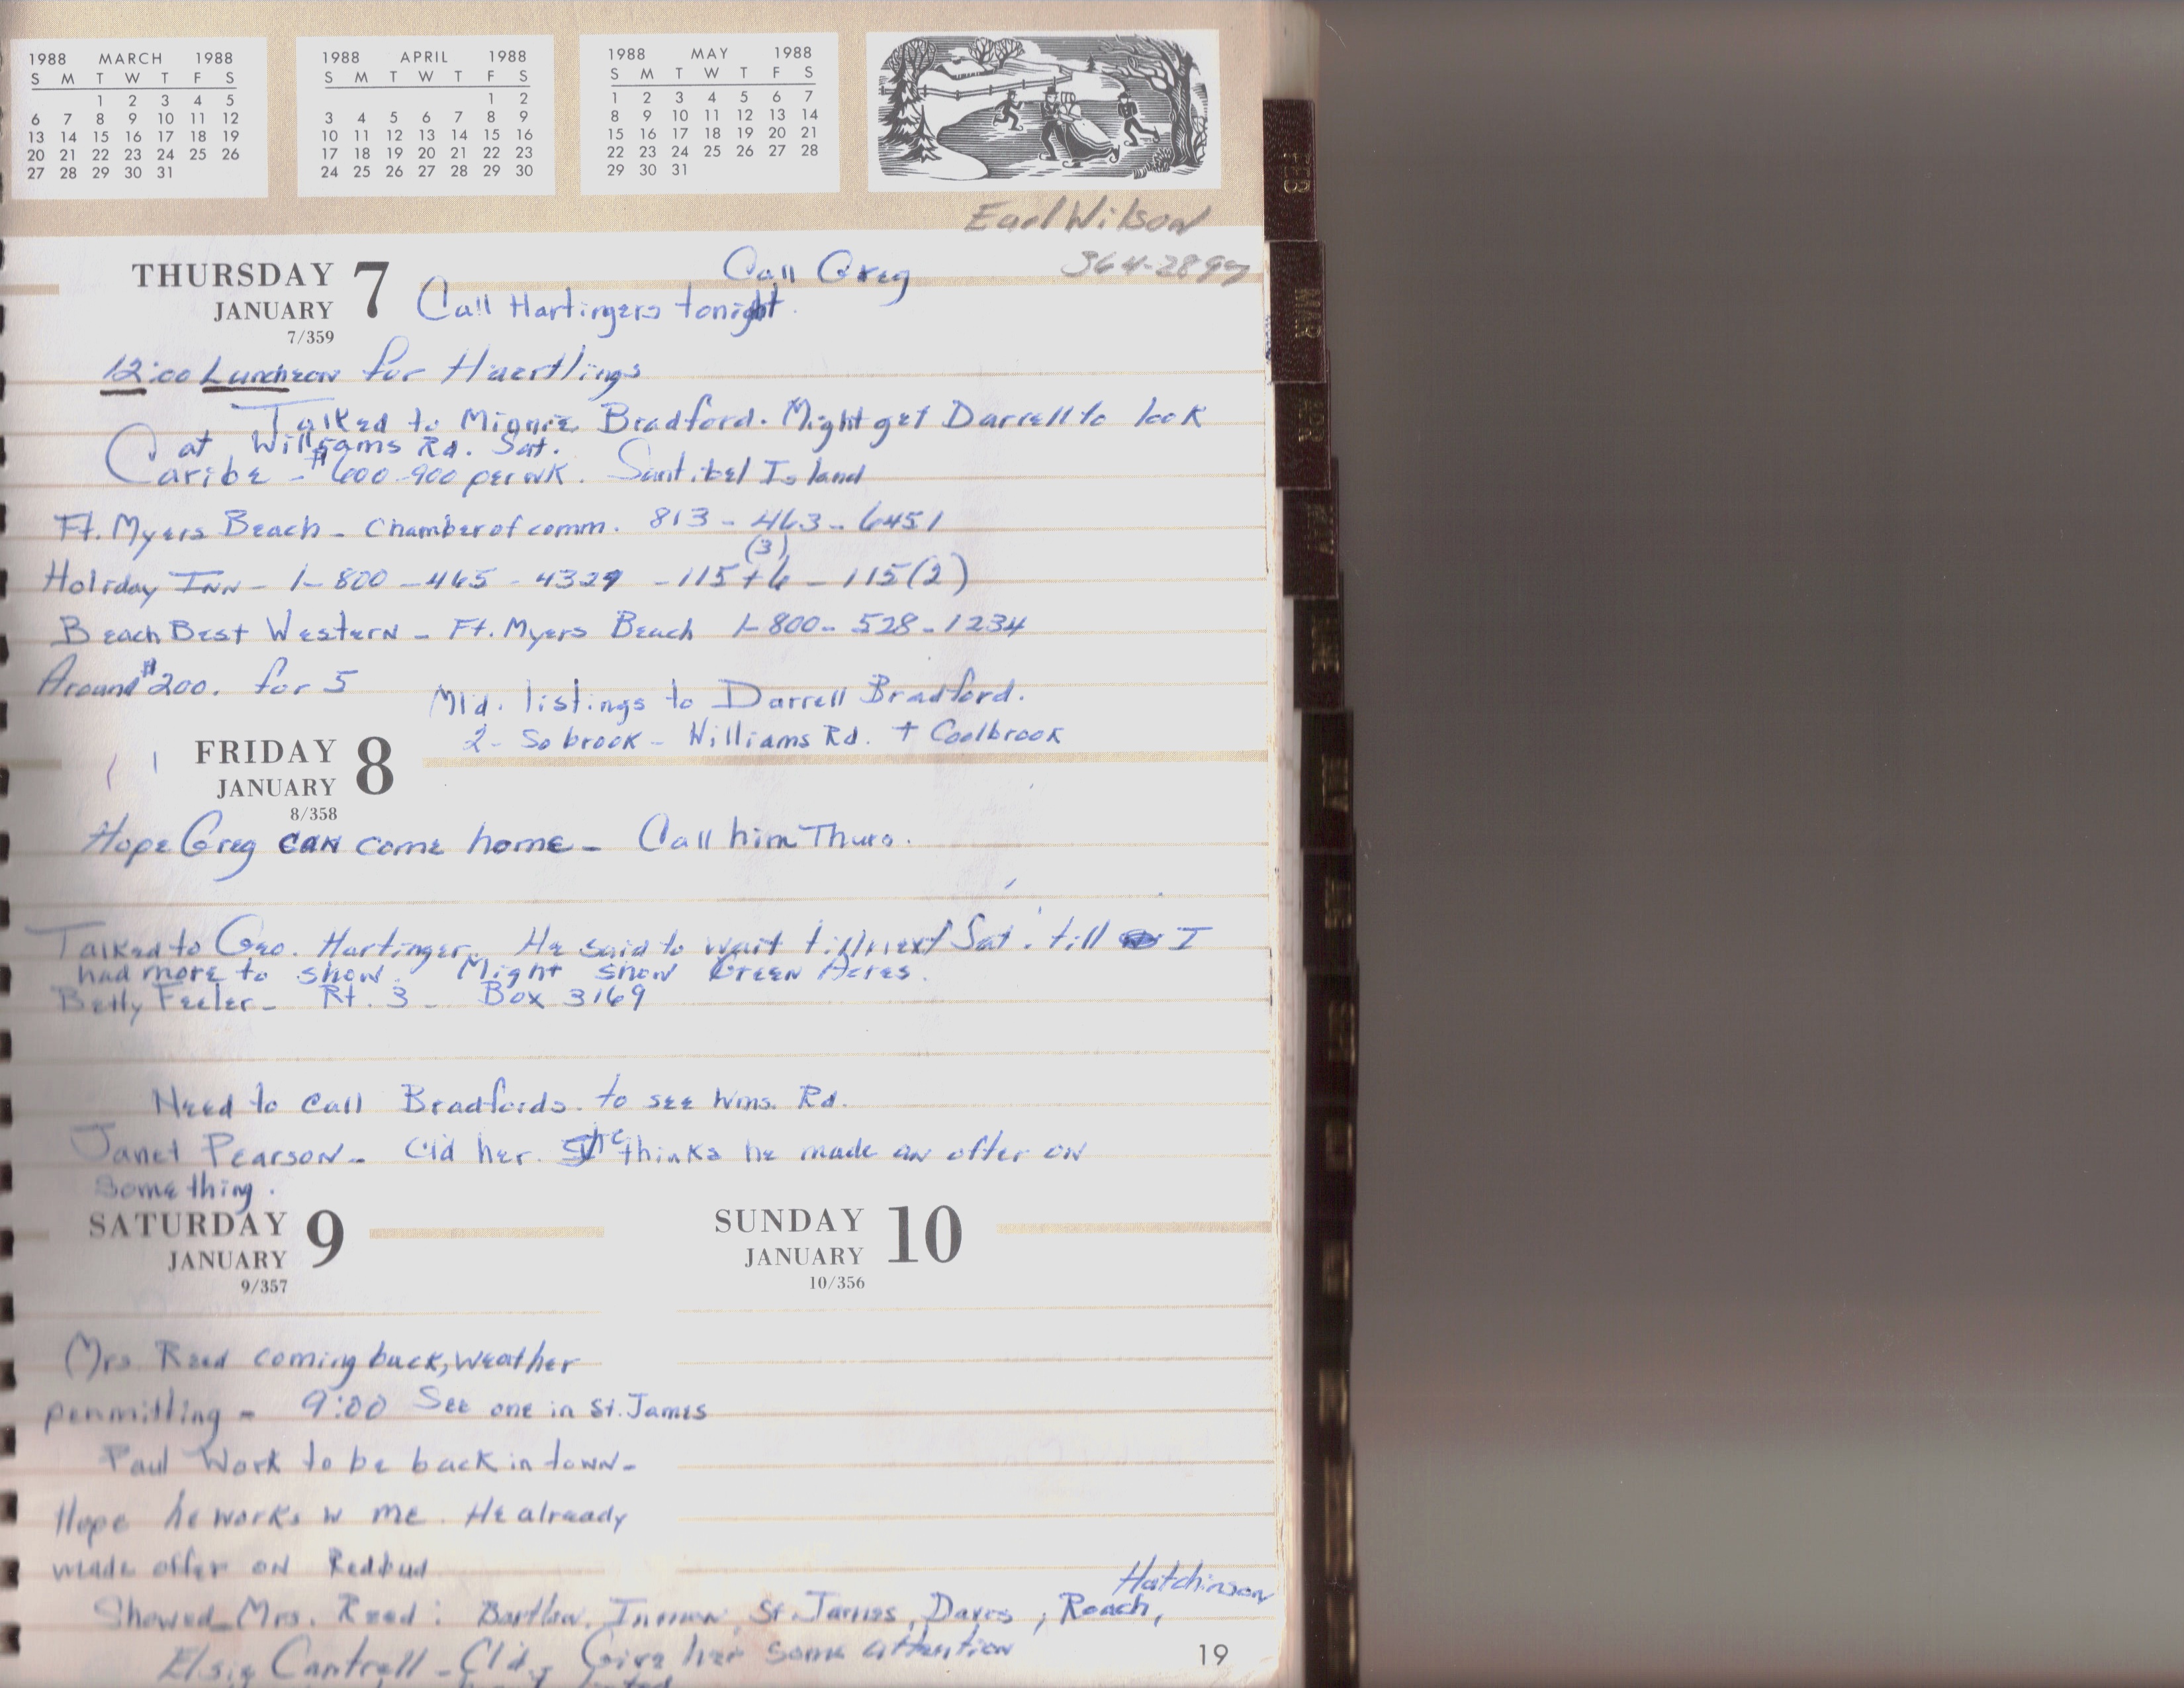 1988 MARCH 1988
S M T W T F S
1 2 3 4 5
6 7 8 9 10 11 12
13 14 15 16 17 18 19
20 21 22 23 24 25 26
27 28 29 30 31
1988 APRIL 1988
S M T W T F S
1 2
3 4 5 6 7 8 9
10 11 12 13 14 15 16
17 18 19 20 21 22 23
24 25 26 27 28 29 30
1988 MAY 1988
S M T W T F S
1 2 3 4 5 6 7
8 9 10 11 12 13 14
15 16 17 18 19 20 21
22 23 24 25 26 27 28
29 30 31
Earl Wilson
THURSDAY 7
JANUARY
7/359
Call Greg
Call Hartingers tonight.
12:00 Luncheon for Haertlings
Talked to Minnie Bradford. Might get Darrell to look
at Williams Rd. Sat.
Caribe - $600-900 per wk. Santibel Island
Ft. Myers Beach - Chamber of comm. 813-463-6451
(3)
Holiday Inn - 1-800-465-4329 - 115+6 - 115(2)
Beach Best Western - Ft. Myers Beach 1-800-528-1234
Around $200. for 5
Mld. listings to Darrell Bradford.
2- Sobrook - Williams Rd. + Coolbrook
FRIDAY 8
JANUARY
8/358
Hope Greg can come home - Call him Thurs.
Talked to Geo. Hartinger. He said to wait till next Sat. till I
had more to show. Might show Green Acres.
Betty Feeler - Rt. 3 - Box 3169
Need to call Bradfords to see Wms. Rd.
Janet Pearson - Cld her. She thinks he made an offer on
something.
SATURDAY 9
JANUARY
9/357
Mrs. Reed coming back, weather
permitting - 9:00 See one in St. James
Paul Work to be back in town -
Hope he works w me. He already
made offer on Redbud
Hutchinson
Showed Mrs. Reed: Bartlow, Inman, St. James, Daves, Roach,
Elsie Cantrell - Cld. Give her some attention
SUNDAY 10
JANUARY
10/356
19
FEB
MAR
APR
MAY
JUNE
JULY